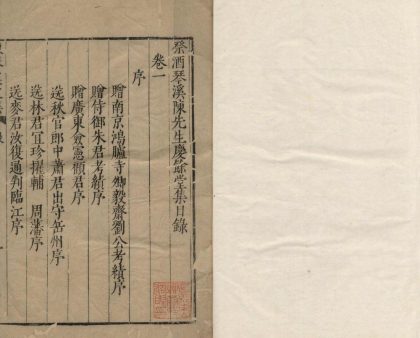 祭酒琴溪陳先生慶餘堂集目錄
卷一
序
贈南京鴻臚寺卿毅齋劉公考績序
贈侍御朱君考績序
贈廣東僉憲顧君序
送秋官郎中蕭君出守岳州序
送林君宜珍擢輔 周藩序
送麥君汝復通判臨江序